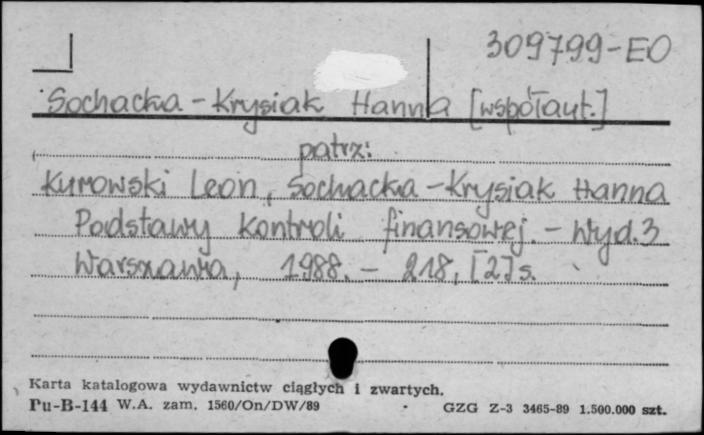 309799-EO
Sochacka-Krysiak Hanna [współaut.]
patrz:
Kurowski Leon, Sochacka-Krysiak Hanna
Podstawy kontroli finansowej. - Wyd. 3
Warszawa, 1988. - 218, [2] s.
Karta katalogowa wydawnictw ciągłych i zwartych.
Pu-B-144 W.A. zam. 1560/On/DW/89 GZG Z-3 3465-89 1.500.000 szt.